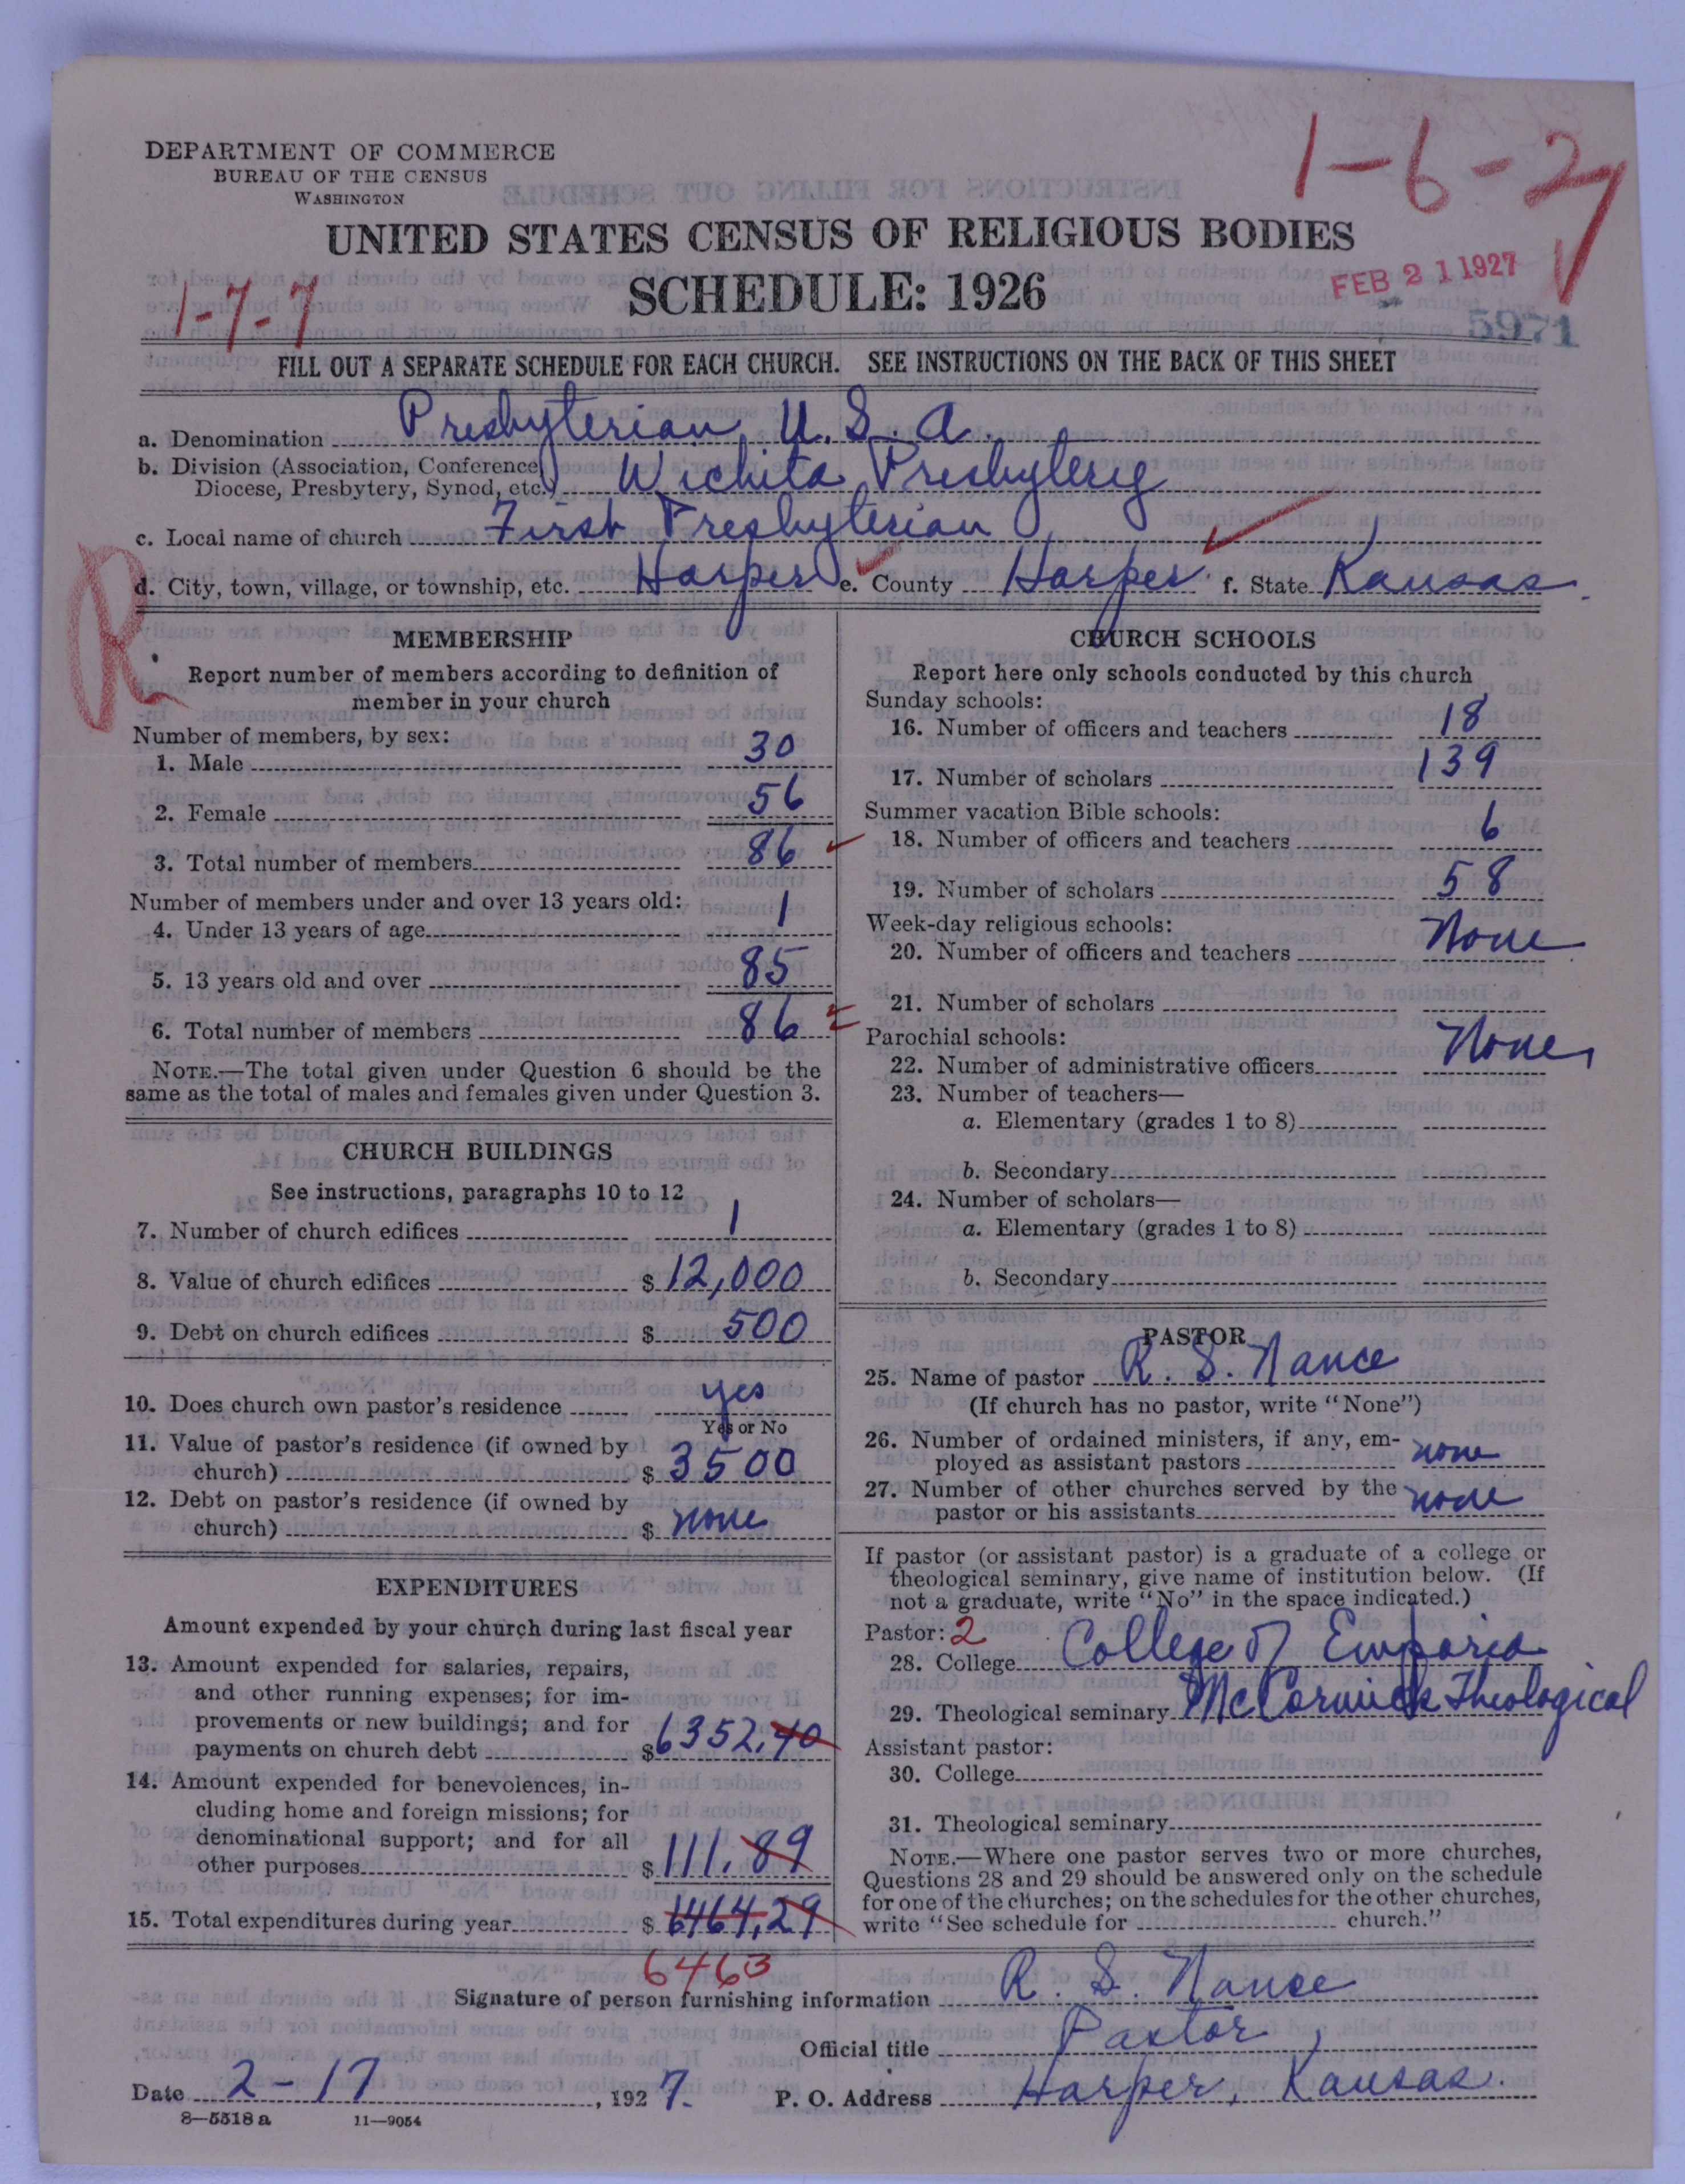 DEPARTMENT OF COMMERCE
BUREAU OF THE CENSUS
WASHINGTON
1-6-27
UNITED STATES CENSUS OF RELIGIOUS BODIES
SCHEDULE: 1926
FEB 21 1927
1-7-7
5971
FILL OUT A SEPARATE SCHEDULE FOR EACH CHURCH. SEE INSTRUCTIONS ON THE BACK OF THIS SHEET
a. Denomination Presbyterian U. S. A.
b. Division (Association, Conference,
Diocese, Presbytery, Synod, etc.) Wichita Presbytery
c. Local name of church First Presbyterian
R
d. City, town, village, or township, etc. Harper e. County Harper f. State Kansas
MEMBERSHIP
Report number of members according to definition of
member in your church
Number of members, by sex:
1. Male 30
2. Female 56
3. Total number of members 86
Number of members under and over 13 years old:
4. Under 13 years of age 1
5. 13 years old and over 85
6. Total number of members 86
NOTE.—The total given under Question 6 should be the
same as the total of males and females given under Question 3.
CHURCH BUILDINGS
See instructions, paragraphs 10 to 12
7. Number of church edifices 1
8. Value of church edifices $ 12,000
9. Debt on church edifices $ 500
10. Does church own pastor's residence yes
Yes or No
11. Value of pastor's residence (if owned by
church) $ 3500
12. Debt on pastor's residence (if owned by
church) $ none
EXPENDITURES
Amount expended by your church during last fiscal year
13. Amount expended for salaries, repairs,
and other running expenses; for im-
provements or new buildings; and for
payments on church debt $ 6352.40
14. Amount expended for benevolences, in-
cluding home and foreign missions; for
denominational support; and for all
other purposes $ 111.89
15. Total expenditures during year $ 6464.29
6463
CHURCH SCHOOLS
Report here only schools conducted by this church
Sunday schools:
16. Number of officers and teachers 18
17. Number of scholars 139
Summer vacation Bible schools:
18. Number of officers and teachers 6
19. Number of scholars 58
Week-day religious schools:
20. Number of officers and teachers None
21. Number of scholars
Parochial schools:
22. Number of administrative officers None
23. Number of teachers—
a. Elementary (grades 1 to 8)
b. Secondary
24. Number of scholars—
a. Elementary (grades 1 to 8)
b. Secondary
PASTOR
25. Name of pastor R. S. Nance
(If church has no pastor, write "None")
26. Number of ordained ministers, if any, em-
ployed as assistant pastors none
27. Number of other churches served by the
pastor or his assistants none
If pastor (or assistant pastor) is a graduate of a college or
theological seminary, give name of institution below. (If
not a graduate, write "No" in the space indicated.)
Pastor: 2
28. College College of Emporia
29. Theological seminary McCormick Theological
Assistant pastor:
30. College
31. Theological seminary
NOTE.—Where one pastor serves two or more churches,
Questions 28 and 29 should be answered only on the schedule
for one of the churches; on the schedules for the other churches,
write "See schedule for church."
Signature of person furnishing information R. S. Nance
Official title Pastor
Date 2-17, 1927. P. O. Address Harper, Kansas.
8—5518 a 11—9054